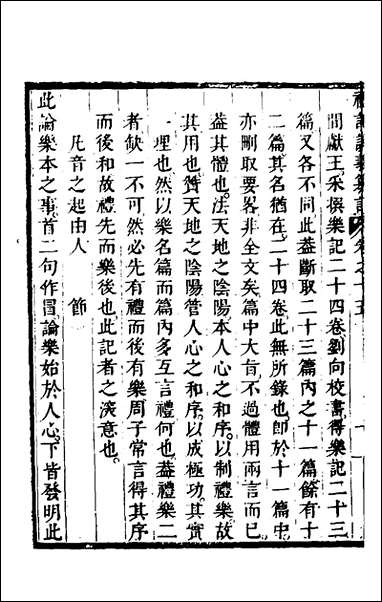 間獻王采撰樂記二十四卷劉向校書得樂記二十三
篇又各不同此蓋斷取二十三篇內之十一篇餘有十
二篇其名猶在二十四卷此無所錄也卽於十一篇中
亦刪取要畧非全文矣篇中大旨不過體用兩言而已
蓋其體也法天地之陰陽本人心之和序以制禮樂故
其用也贊天地之陰陽管人心之和序以成極功其實
一理也然以樂名篇而篇內多互言禮何也蓋禮樂二
者缺一不可然必先有禮而後有樂周子常言得其序
而後和故禮先而樂後也此記者之深意也
凡音之起由人　節
此論樂本之事首二句作冒論樂始於人心下皆發明此